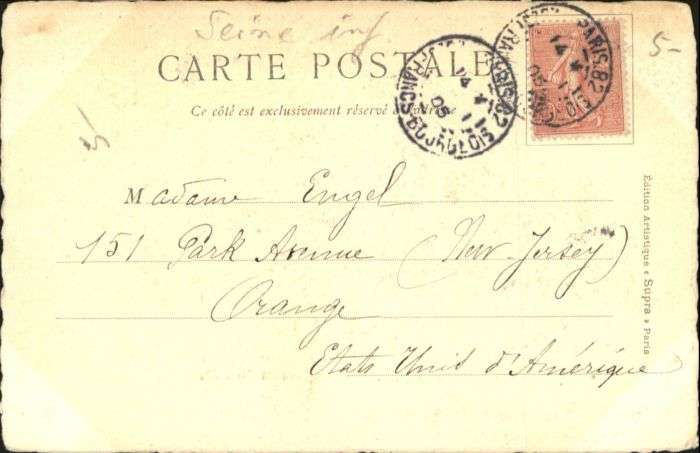 Seine inf
5-
CARTE POSTALE
Ce côté est exclusivement réservé à l'adresse
PARIS.82
14 * 11
05
R. FRANCS-BOURGEOIS
PARIS.82
14 * 11
05
Madame Engel
151 Park Avenue (New-Jersey)
Orange
Etats Unid d'Amérique
Édition Artistique « Supra » Paris